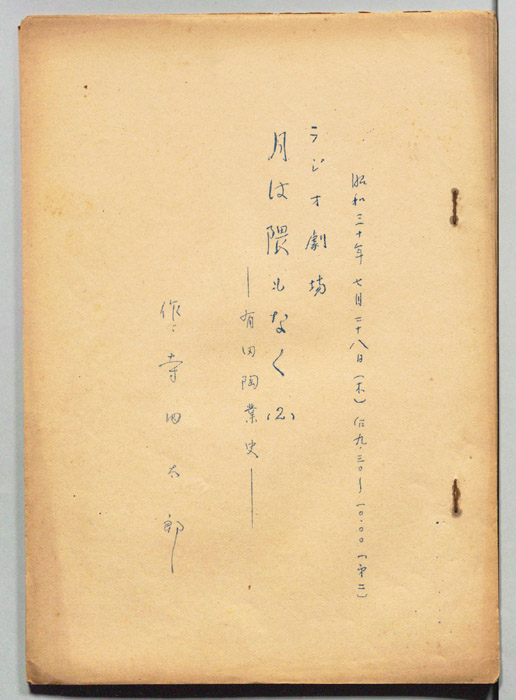 昭和三十年七月二十八日(木)后九.三〇〜一〇.〇〇(第二)
ラジオ劇場
月は隈もなく(2)
―有田陶業史―
作、寺田太郎